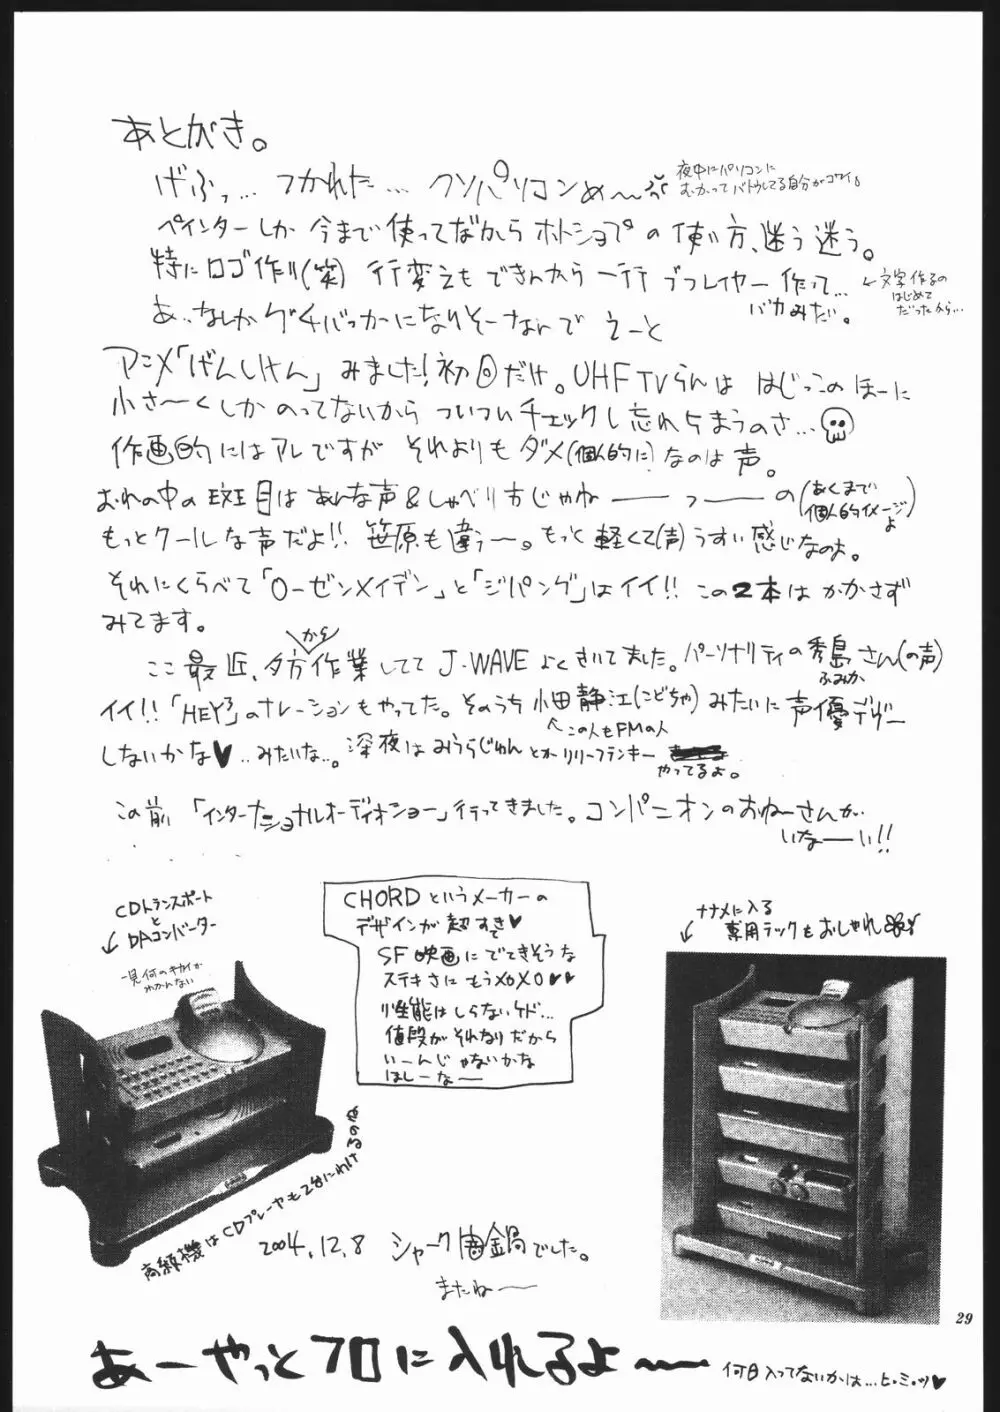 あとがき。
げふっ…つかれた…クソパソコンめ〜
夜中にパソコンに
むかってバトウしてる自分がコワイ。
ペインターしか今まで使ってなかったからホトショプの使い方、迷う迷う。
特にロゴ作り(笑)行変えもできんから一行ずつレイヤー作って…
バカみたい。
←文字作るの
はじめて
だったから…
あ、なんかグチばっかになりそーなんで えーと
アニメ「げんしけん」みました!初回だけ。UHF TVらんは はじっこのほーに
小さ〜くしかのってないから ついついチェックし忘れちまうのさ…
作画的にはアレですが それよりもダメ(個人的に)なのは声。
おれの中の斑目はあんな声&しゃべり方じゃねーっーの(あくまで
個人的イメージ
よ)
もっとクールな声だよ!!笹原も違う〜。もっと軽くて(声)うすい感じなのよ。
それにくらべて「ローゼンメイデン」と「ジパング」はイイ!!この2本はかかさず
みてます。
ここ最近、夕方から作業してて J-WAVE よくきいてました。パーソナリティの秀島さん(の声)
ふみか
イイ!!「HEY³」のナレーションもやってた。そのうち小田静江(こどちゃ)みたいに声優デビュー
↖この人もFMの人
しないかな♥…みたいな…。深夜はみうらじゅんとかリリーフランキー
やってるよ。
この前「インターナショナルオーディオショー」行ってきました。コンパニオンのおねーさんが
いなーい!!
CDトランスポート
と
DAコンバーター
一見何のキカイか
わかんない
CHORDというメーカーの
デザインが超すてき♥
SF映画にでてきそうな
ステキさにもうメロメロ♥♥
性能はしらないケド…
値段がそれなりだから
いーんじゃないかな
ほしーなー
ナナメに入る
専用ラックもおしゃれ
高級機はCDプレーヤも2台にわけるのね
2004.12.8 シャーク鍋でした。
またねー
29
あーやっとフロに入れるよ〜
何日入ってないかは…ヒ・ミ・ツ♥